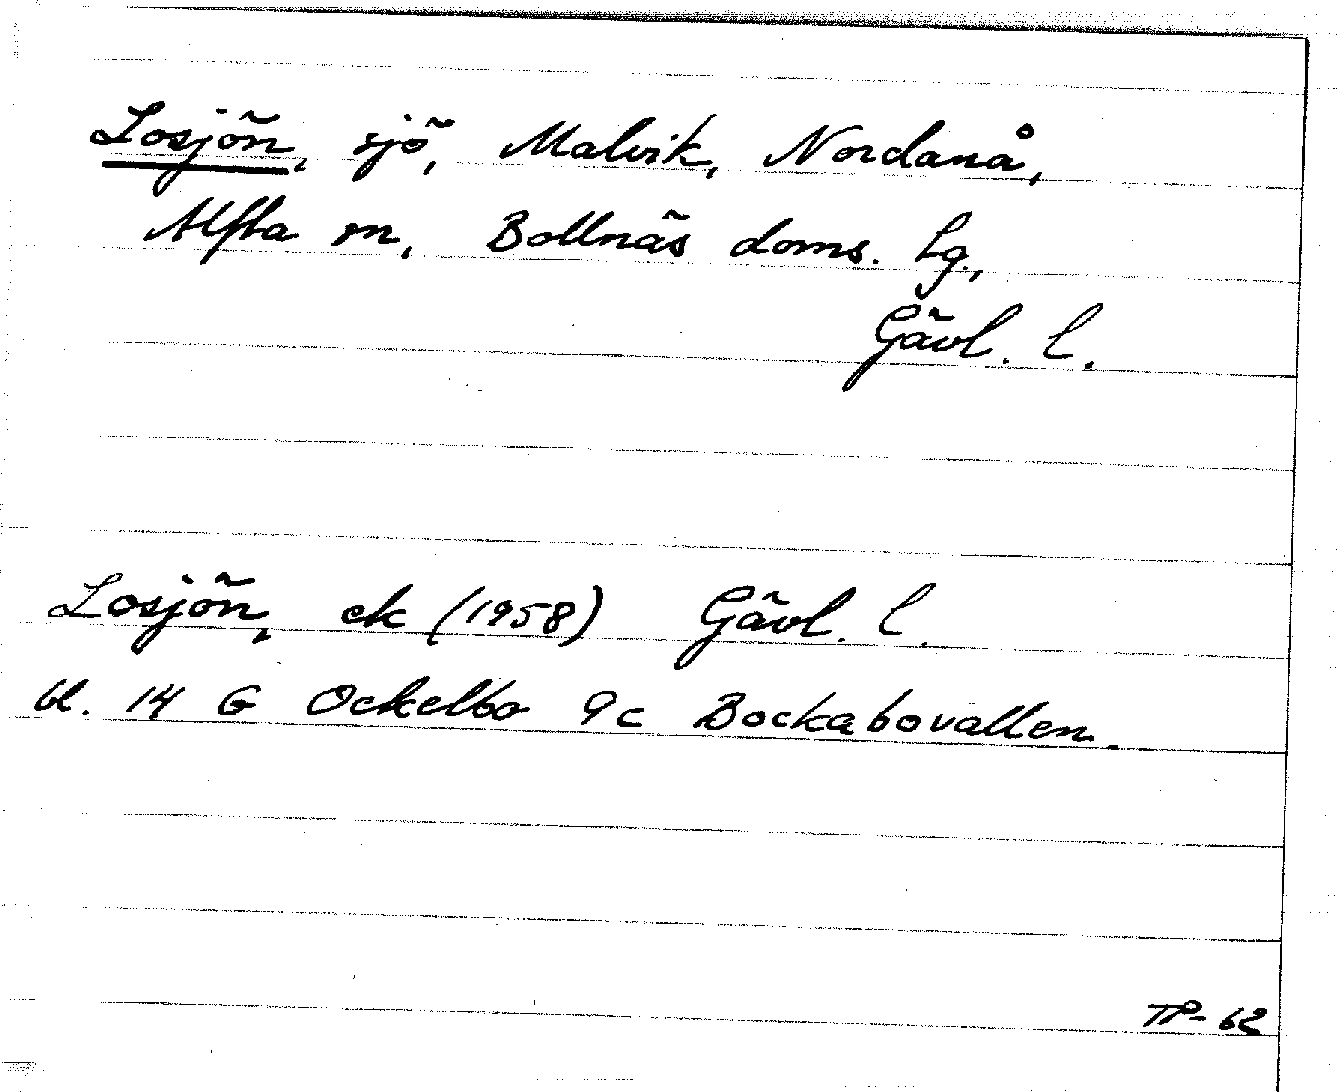 Losjön, sjö, Malvik, Nordanå,
Alfta sn, Bollnäs doms. lg.,
Gävl. l.
Losjön, ek (1958) Gävl. l.
bl. 14 G Ockelbo 9c Bockabovallen.
TP-62